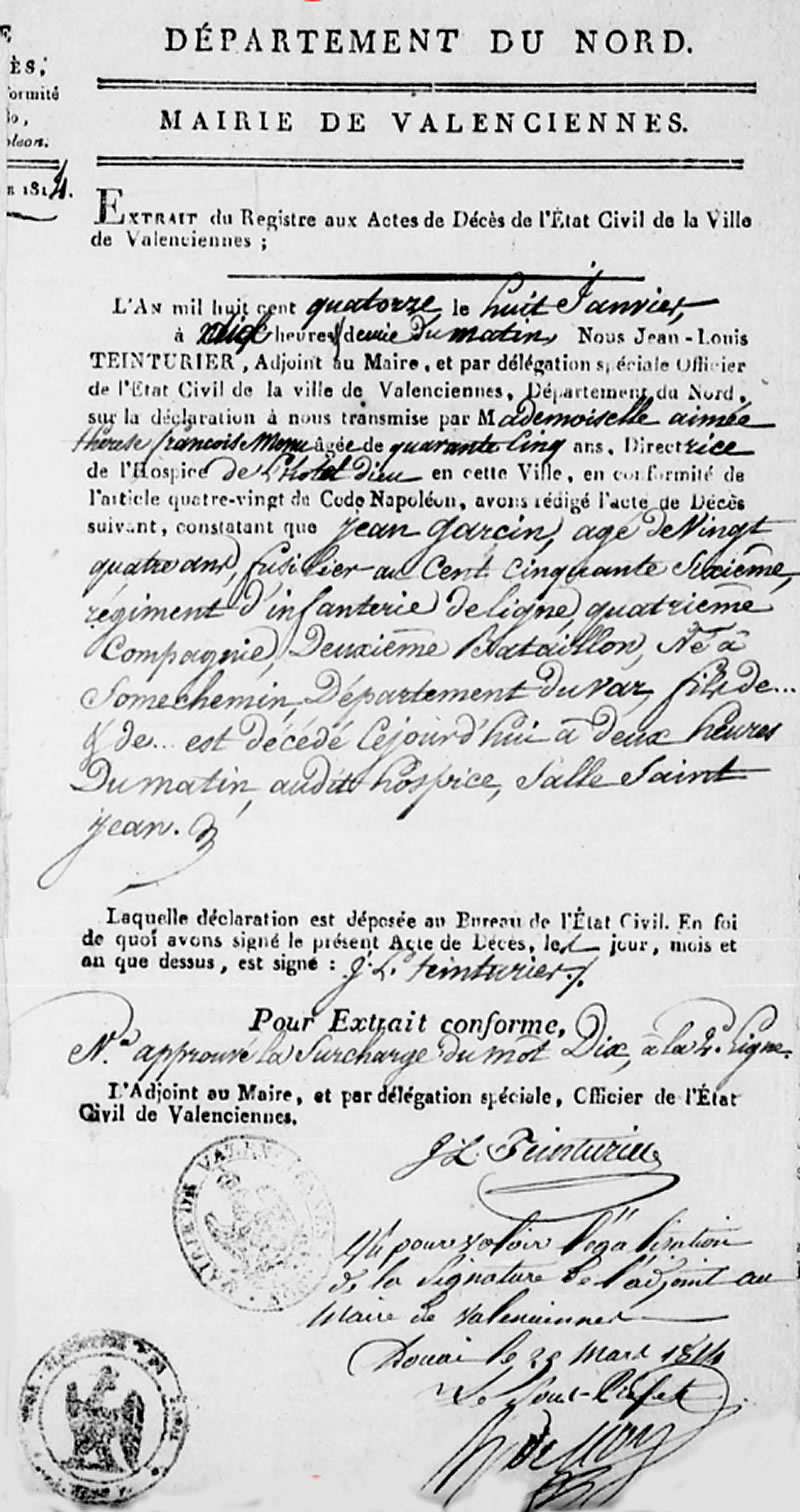 ÈS,
formité
eon.
DÉPARTEMENT DU NORD.
MAIRIE DE VALENCIENNES.
R 1814.
EXTRAIT du Registre aux Actes de Décès de l'État Civil de la Ville
de Valenciennes ;
L'AN mil huit cent quatorze, le huit Janvier,
à dix heures & demie du matin, Nous Jean-Louis
TEINTURIER, Adjoint au Maire, et par délégation spéciale Officier
de l'État Civil de la ville de Valenciennes, Département du Nord,
sur la déclaration à nous transmise par Mademoiselle aimée
thérese francoise âgée de quarante Cinq ans, Directrice
de l'Hospice de L'hotel dieu en cette Ville, en conformité de
l'article quatre-vingt du Code Napoléon, avons rédigé l'acte de Décès
suivant, constatant que jean garcin, agé de Vingt
quatre ans, fusilier au Cent Cinquante Sixième,
régiment d'infanterie de ligne, quatrième
Compagnie, Deuxième Bataillon, Né à
Somechemin, Département du var, fils de...
& de... est décédé Cejourd'hui à deux heures
Du matin, audit hospice, Salle Saint
jean.
Laquelle déclaration est déposée au Bureau de l'État Civil. En foi
de quoi avons signé le présent Acte de Décès, les jour, mois et
an que dessus, est signé : J. L. teinturier./.
Pour Extrait conforme,
Na. approuvé la Surcharge du mot Dix, à la 2e. Ligne.
L'Adjoint au Maire, et par délégation spéciale, Officier de l'État
Civil de Valenciennes.
J L Teinturier
MAIRIE DE VALENCIENNES
Vu pour valoir légalisation
de la Signature de l'adjoint au
Maire de Valenciennes
Douai le 22 Mars 1814
Le Sous-Préfet